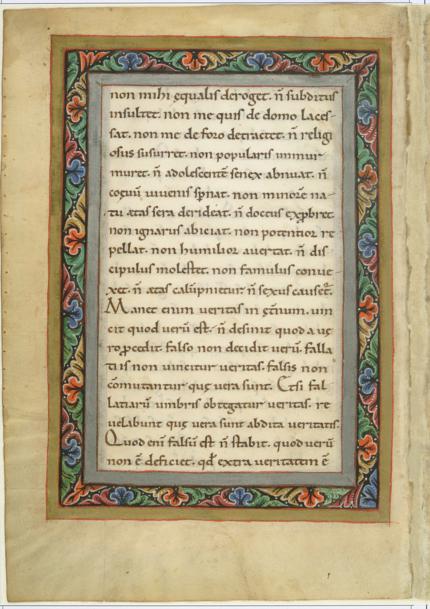 non mihi ęqualis deroget. n̄ subditus
insultet. non me quis de domo laces-
sat. non me de foro detractet. n̄ religi
osus susurret. non popularis murmur
muret. n̄ adolescentē senex abnuat. n̄
coęuū uiuenis spnat. non minorē na-
tu ætas sera derideat. n̄ doctus exp̱bret.
non ignarus abiciat. non potentior re
pellat. non humilior auertat. n̄ dis
cipulus molestet. non famulus conuic
xet. n̄ ætas calūpnietur n̄ sexus causet᷑.
Manet enim ueritas in ęt̄num. uin
cit quod uerū est. n̄ desinit quod a ue
ro ꝓcedit. falso non decidit uerū. falla
tiis non uincitur ueritas. falsis non
cōmutantur quę uera sunt. Etsi fal
latiarū umbris obtegatur ueritas. re
uelabunt quę uera sunt abdita ueritatis.
Quod eni̅ falsū est n̄ stabit. quod uerū
non ē deficiet. qđ extra ueritatem ē